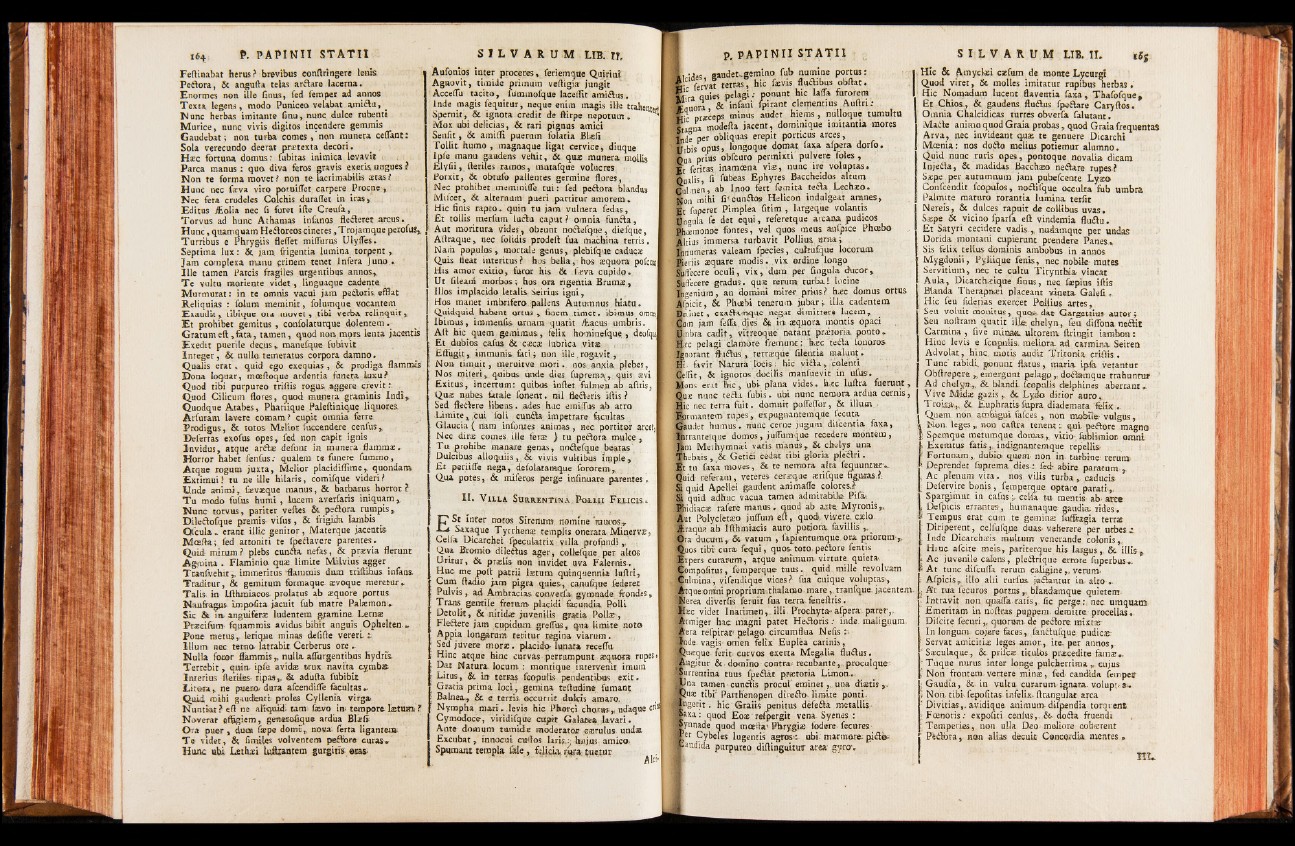 164 P. PAPINII STATII
Festinabat herus? brevibus constringere lenis
Pectora, & angusta telas arctare lacerna.
Enormes non ille sinus, sed semper ad annos
Texta legens, modo Puniceo velabat amictu,
Nunc herbas imitante sinu, nunc dulce rubenti
Murice, nunc vivis digitos incendere gemmis
Gaudebat; non turba comes, non munera cessant:
Sola verecundo deerat prætexta decori.
Hæc fortuna domus: subitas inimica levavit
Parca manus: quo diva feros gravis exeris ungues?
Non te forma movet? non te lacrimabilis ætas?
Hunc nec sæva viro potuisset carpere Procne,
Nec fera crudeles Colchis durasset in iras,
Editus Æolia nec si foret iste Creusa,
Torvus ad hunc Athamas infanos flecteret arcus.
Hunc, quamquam Hectoreos cineres, Trojamque perosus,
Turribus e Phrygiis flesset missurus Ulysses.
Septima lux: & jam frigentia lumina torpent,
Jam complexa manu crinem tenet Infera Juno.
Ille tamen Parcis fragiles urgentibus annos,
Te vultu moriente videt, linguaque cadente
Murmurat: in te omnis vacui jam pectoris efflat
Reliquias: solum meminit, solumque vocantem
Exaudit, tibique ora movet, tibi verba relinquit,
Et prohibet gemitus, consolaturque dolentem.
Gratum est, fata, tamen, quod non mors lenta jacentis
Exedit puerile decus, manesque subivit
Integer, & nullo temeratus corpora damno.
Qualis erat. quid ego exequias, & prodiga flammis
Dona loquar, mœstoque ardentia funera luxu?
Quod tibi purpureo tristis rogus aggere crevit:
Quod Cilicum flores, quod munera graminis Indi,
Quodque Arabes, Phariique Palestinique liquores
Arsuram lavere comam? cupit omnia ferre
Prodigus, & totos Melior succendere census,
Desertas exosus opes, sed non capit ignis
Invidus, atque arctæ desunt in munera flammæ.
Horror habet sensus: qualem te funere summo,
Atque rogum juxta, Melior placidissime, quondam
Extimui? tu ne ille hilaris, comisque videri?
Unde animi, sævæque manus, & barbarus horror?
Tu modo fusus humi, lucem aversaris iniquam,
Nunc torvus, pariter vestes & pectora rumpis,
Dilectosque premis visus, & frigida lambis
Oscula. erant illic genitor, Materque jacentis
Mœsta; sed attoniti te spectavere parentes.
Quid mirum? plebs cuncta nefas, & prævia flerunt
Agmina. Flaminio quæ limite Milvius agger
Transvehit, immeritus flammis dum tristibus infans
Traditur, & gemitum formaque ævoque meretur.
Talis in Isthmiacos prolatus ab æquore portus
Naufragus imposita jacuit sub matre Palæmon.
Sic & in anguiferæ ludentem gramine Lernæ
Præcisum squammis avidus bibit anguis Ophelten.
Pone metus, letique minas desiste vereri:
Illum nec terno latrabit Cerberus ore.
Nulla soror flammis, nulla assurgentibus hydris
Terrebit, quin ipse avidæ trux navita cymbæ
Interius steriles ripas, & adusta subibit
Litora, ne puero dura ascendisse facultas.
Quid mihi gaudenti proles Cyllenia virga
Nuntiat? est ne aliquid tam sævo in tempore lætum?
Noverat effigiem, generosique ardua Blæsi
Ora puer, dum sæpe domi, nova ferta ligantem
Te videt, & similes volventem pectore curas.
Hunc ubi Lethæi lustrantem gurgitis oras
SILVARUM LIB. II.
Ausonios inter proceres, seriemque Quirini
Agnovit, timide primum vestigia jungit
Accessu tacito, summosque lacessit amictus.
Inde magis sequitur, neque enim magis ille trahentem
Spernit, & ignota credit de stirpe nepotum.
Mox ubi delicias, & rari pignus amici
Sensit, & amissi puerum solaria Blæsi
Tollit humo, magnaque ligat cervice, diuque
Ipse manu gaudens vehit, & quæ munera mollis
Elysii, steriles ramos, mutasque volucres
Porgit, & obtuso pallentes germine flores,
Nec prohibet meminisse tui: sed pectora blandus
Miscet, & alternum pueri partitur amorem.
Hic finis rapto. quin tu jam vulnera sedas,
Et tollis mersum luctu caput? omnia functa,
Aut moritura vides, obeunt noctesque, diesque,
Astraque, nec solidis prodest sua machina terris.
Nam populos, mortale genus, plebisque caducæ
Quis fleat interitus? hos bella, hos æquora poscunt
His amor exitio, furor his & sæva cupido.
Ut sileam morbos; hos ora rigentia Brumæ,
Illos implacido letalis Seirius igni,
Hos manet imbrifero pallens Autumnus hiatu.
Quidquid habent ortus, finem timet. ibimus omnes
Ibimus, immensis urnam quatit Æacus umbris.
Ast hic quem gemimus, felix hominesque, deosque
Et dubios casus & cæcæ lubrica vitæ
Effugit, immunis fati; non ille rogavit,
Non timuit, meruitve mori. nos anxia plebes,
Nos miseri, quibus unde dies suprema, quis ævi
Exitus, incertum: quibus instet fulmen ab astris,
Quæ nubes fatale sonent. nil flecteris istis?
Sed flectere libens. ades huc emissus ab atro
Limite, cui soli cuncta impetrare facultas
Glaucia (nam insontes animas, nec portitor arcet,
Nec diræ comes ille feræ) tu pectora mulce,
Tu prohibe manare genas, noctesque beatas
Dulcibus alloquiis, & vivis vultibus imple,
Et periisse nega, desolatamque sororem,
Qua potes, & miseros perge insinuare parentes.
II. VILLA SURRENTINA POLLII FELICIS.
ESt inter notos Sirenum nomine muros,
Saxaque Tyrrhenæ templis onerata Minervæ,
Celsa Dicarchei speculatrix villa profundi,
Qua Bromio dilectus ager, collesque per altos
Uritur, & prælis non invidet uva Falernis.
Huc me post patrii lætum quinquennia lustri,
Cum stadio jam pigra quies, canusque sederet
Pulvis, ad Ambracias conversa gymnade frondes,
Trans gentile fretum placidi facundia Polli
Detulit, & nitidæ juvenilis gratia Pollæ,
Flectere jam cupidum gressus, qua limite noto
Appia longarum teritur regina viarum.
Sed juvere moræ. placido lunata recessu
Hinc atque hinc curvas perrumpunt æquora rupes.
Dat Natura locum: montique intervenit imum
Litus, & in terras scopulis pendentibus exit.
Gratia prima loci, gemina testudine fumant
Balnea, & e terris occurrit dulcis amaro
Nympha mari. levis hic Phorci chorus, udaque crines
Cymodoce, viridisque cupit Galatea lavari.
Ante domum tumidæ moderator cærulus undæ
Excubat, innocui custos laris: hujus amico
Spumant templa sale, felicia rura tuetur
Alci-
P. PAPINII STATII
Alcides, gaudet gemino sub numine portus:
Hic servat terras, hic sævis fluctibus obstat.
Mira quies pelagi: ponunt hic lassa furorem
Æquora, & insani spirant clementius Austri:
Hic præceps minus audet hiems, nulloque tumultu
Stagna modesta jacent, dominique imitantia mores
Inde per obliquas erepit porticus arces,
Urbis opus, longoque domat saxa aspera dorso.
Qua prius obscuro permixti pulvere soles,
Et feritas inamœna viæ, nunc ire voluptas.
Qualis, si subeas Ephyres Baccheidos altum
Culmen, ab Inoo fert semita tecta Lechæo.
Non mihi si cunctos Helicon indulgeat amnes,
Et superet Pimplea sitim, largeque volantis
Ungula se det equi, referetque arcana pudicos
Phæmonoe fontes, vel quos meus auspice Phœbo
Altius immersa turbavit Pollius urna;
Innumeras valeam species, cultusque locorum
Pieriis æquare modis. vix ordine longo
Suffecere oculi, vix, dum per singula ducor,
Suffecere gradus. quæ rerum turba! locine
Ingenium, an domini mirer prius? hæc domus ortus
Aspicit, & Phœbi tenerum jubar; illa cadentem
Detinet, exactamque negat dimittere lucem,
Cum jam fessa dies & in æquora montis opaci
Umbra cadit, vitreoque natant prætoria ponto.
Hæc pelagi clamore fremunt: hæc tecta sonoros
Ignorant fluctus, terræque silentia malunt.
His favit Natura locis: hic victa, colenti
Cessit, & ignotos docilis mansuevit in usus.
Mons erat hic, ubi plana vides. hæc lustra fuerunt,
Quæ nunc tecta subis. ubi nunc nemora ardua cernis,
Hic nec terra fuit. domuit possessor, & illum
Formantem rupes, expugnantemque secuta
Gaudet humus. nunc cerne jugum discentia saxa,
Intrantesque domos, jussumque recedere montem,
Jam Methymnæi vatis manus, & chelys una
Thebais, & Getici cedat tibi gloria plectri.
Et tu saxa moves, & te nemora alta sequuntur.
Quid referam, veteres ceræque ærisque figuras?
Si quid Apellei gaudent animasse colores?
Si quid adhuc vacua tamen admirabile Pisa
Phidiacæ rasere manus. quod ab arte Myronis,
Aut Polycleteo jussum est, quod vivere cælo
Æraque ab Isthmiacis auro potiora favillis,
Ora ducum, & vatum, sapientumque ora priorum,
Quos tibi cura sequi, quos toto pectore sentis
Expers curarum, atque animum virtute quieta
Compositus, semperque tuus. quid mille revolvam
Culmina, visendique vices? sua cuique voluptas,
Atque omni proprium thalamo mare, transque jacentem
Nerea diversis servit sua terra fenestris.
Hæc videt Inarimen, illi Prochyta aspera paret,
Armiger hac magni patet Hectoris: inde malignum
Aera respirat pelago circumflua Nesis:
Inde vagis omen felix Euplea carinis,
Quæque ferit curvos exerta Megalia fluctus.
Angitur & domino contra recubante, proculque
Surrentina tuus spectat prætoria Limon.
Una tamen cunctis procul eminet, una diætis,
Quæ tibi Parthenopen directo limite ponti
Ingerit. hic Graiis penitus defecta metallis
Saxa: quod Eoæ respergit vena Syenes:
Synnade quod mœsta Phrygiæ fodere secures
Per Cybeles lugentis agros: ubi marmore picto
Candida purpureo distinguitur area gyro.
SILVARUM LIB. II. 165
Hic & Amyclæi cæsum de monte Lycurgi
Quod viret, & molles imitatur rupibus herbas.
Hic Nomadum lucent flaventia saxa, Thasosque,
Et Chios, & gaudens fluctus spectare Carystos.
Omnia Chalcidicas turres obversa salutant.
Macte animo quod Graia probas, quod Graia frequentas
Arva, nec invideant quæ te genuere Dicarchi
Mœnia: nos docto melius potiemur alumno.
Quid nunc ruris opes, pontoque novalia dicam
Injecta, & madidas Bacchæo nectare rupes?
Sæpe per autumnum jam pubescente Lyæo
Conscendit scopulos, noctisque occulta sub umbra
Palmite maturo rorantia lumina tersit
Nereis, & dulces rapuit de collibus uvas.
Sæpe & vicino sparsa est vindemia fluctu.
Et Satyri cecidere vadis, nudamque per undas
Dorida montani cupierunt prendere Panes.
Sis felix tellus dominis ambobus in annos
Mygdonii, Pyliique senis, nec nobile mutes
Servitium, nec te cultu Tirynthia vincat
Aula, Dicarcheique sinus, nec sæpius istis
Blanda Therapnæi placeant vineta Galesi.
Hic seu siderias exercet Pollius artes,
Seu voluit monitus, quos dat Gargettius autor;
Seu nostram quatit ille chelyn, seu dissona nectit
Carmina, sive minax ultorem stringit iambon:
Hinc levis e scopulis meliora ad carmina Seiren
Advolat, hinc motis audit Tritonia cristis.
Tunc rabidi ponunt flatus, maria ipsa vetantur
Obstrepere, emergunt pelago, doctamque trahuntur
Ad chelyn, & blandi scopulis delphines aberrant.
Vive Midæ gazis, & Lydo ditior auro,
Troica, & Euphratis supra diademata felix.
Quem non ambigui fasces, non mobile vulgus,
Non leges, non castra tenent: qui pectore magno
Spemque metumque domas, vitio sublimior omni
Exemtus fatis, indignantemque repellis
Fortunam, dubio quem non in turbine rerum
Deprendet suprema dies: sed abire paratum,
Ac plenum vita. nos vilis turba, caducis
Deservire bonis, semperque optare parati,
Spargimur in casus: celsa tu mentis ab arce
Despicis errantes, humanaque gaudia rides.
Tempus erat cum te geminæ suffragia terræ
Diriperent, celsusque duas veherere per urbes:
Inde Dicarcheis multum venerande colonis,
Hinc adscite meis, pariterque his largus, & illis,
Ac juvenile calens, plectrique errore superbus.
At tunc discussa rerum caligine, verum
Aspicis, illo alii rursus jactantur in alto.
At tua securos portus, blandamque quietem
Intravit non quassa ratis, sic perge: nec unquam
Emeritam in nostras puppem demitte procellas.
Discite securi, quorum de pectore mixtæ
In longum cojere faces, sanctusque pudicæ
Servat amicitiæ leges amor, ite per annos,
Sæculaque, & priscæ titulos præcedite famæ.
Tuque nurus inter longe pulcherrima, cujus
Non frontem vertere minæ, sed candida semper
Gaudia, & in vultu curarum ignara voluptas.
Non tibi sepositas infelix strangulat arca
Divitias, avidique animum dispendia torquent
Fœnoris: expositi census, & docta fruendi
Temperies, non ulla Deo meliore cohærent
Pectora, non alias decuit Concordia mentes.
III.